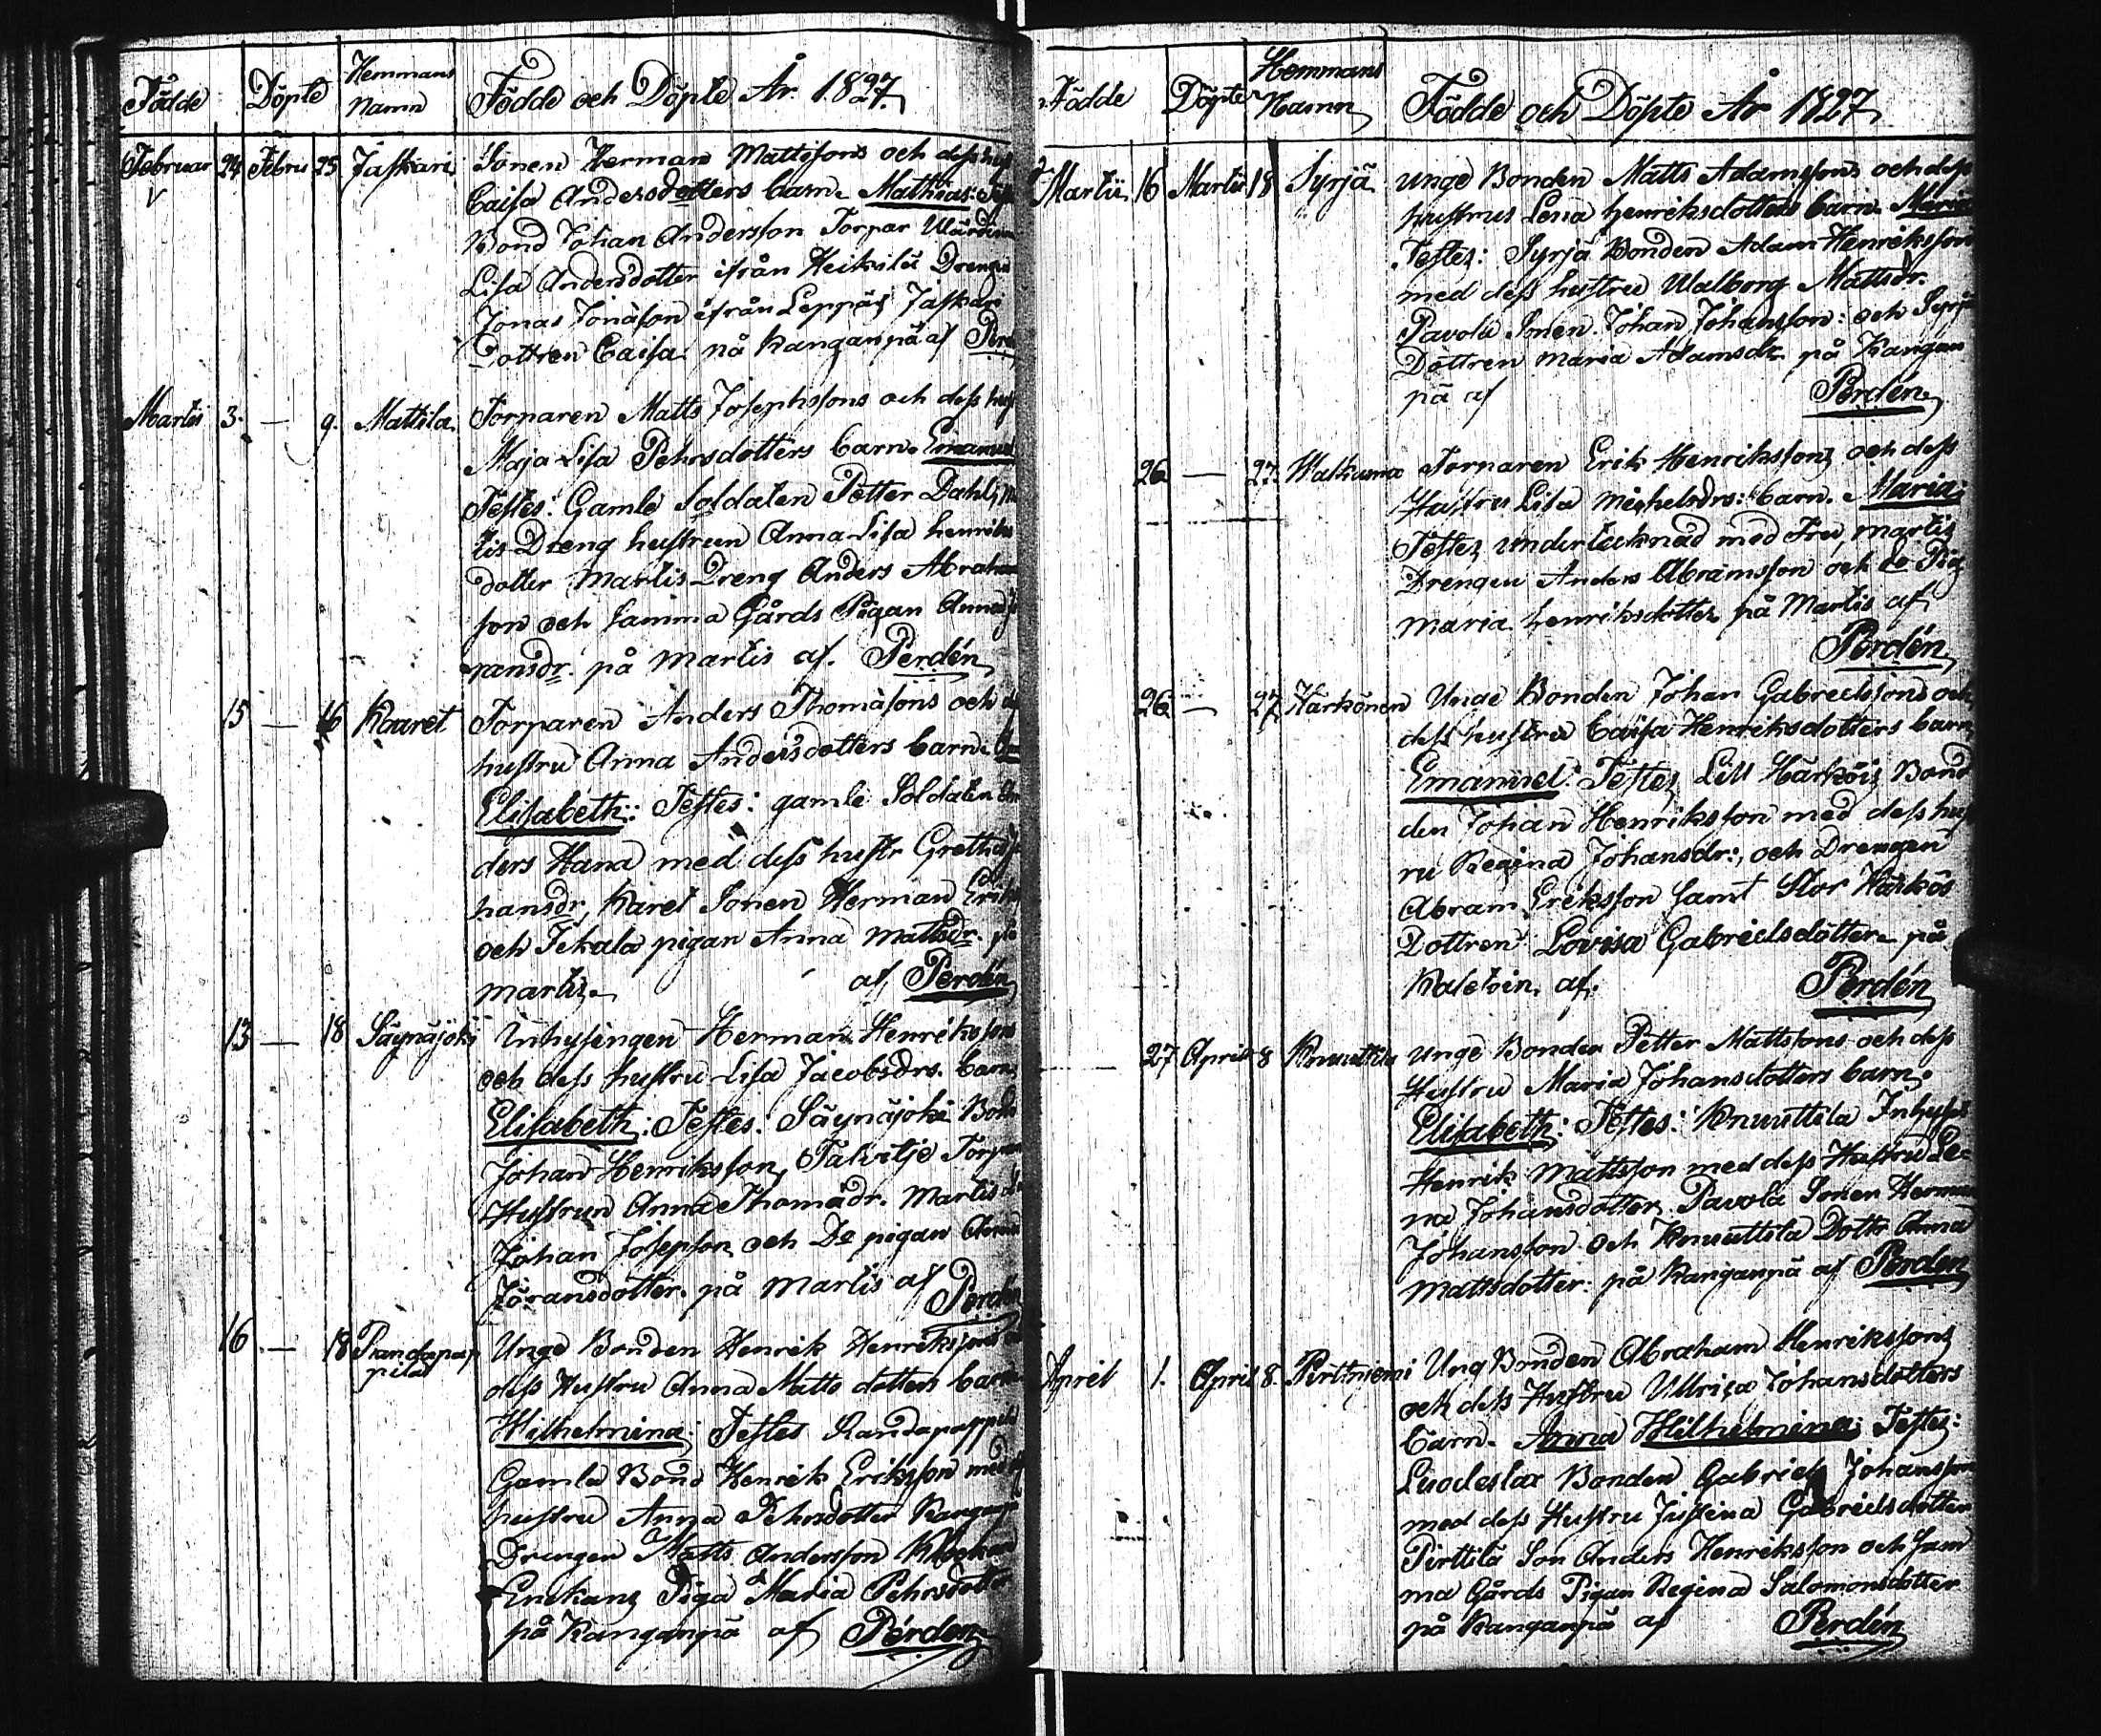 Födde Döpte Hemmans Namn Födde och Döpte År. 1827.
Februar 24 Febru 25 Jaskari Sonen Herman Mattssons och dess
Caisa Andersdotters barn. Mathias:
Bond Johan Andersson Torpar
Lisa Andersdotter ifrån Heikilä Drengen
Jonas Jonasson ifrån Leppäs Jaskar
Dottren Caisa på Kanganpä af
Martii 3. — 9. Mattila Torparen Matts Josephssons och dess
Maja Lisa Pehrsdotters barn. Emanuel
Testes: Gamle Soldaten Petter Dahl,
tis Dreng hustrun Anna Lisa henriks
dotter Martis Dreng Anders Abraham
son och samma Gårds Pigan Anna
ransdr. på Martis af. Perdén
15 — 16 Karet Torparen Anders Thomasons och
hustru Anna Andersdotters barn.
Elisabeth: Testes: gamle Soldaten
ders Hana med dess hustr Gretha
hansdr, Karet Sonen Herman
och Tekala pigan Anna Mattsdr. på
martis. af Perdén
13 — 18 Säynäjoki Inhysingen Herman Henrikssons
och dess hustru Lisa Jacobsdrs. barn
Elisabeth: Testes: Säynäjoki Bond
Johan Henriksson, Talvitje Torpar
Hustrun Anna Thomadr. Martis
Johan Josepson och Do pigan Anna
Jöransdotter. på Martis af Perdén
16 — 18 Randapap Unge Bonden Henrik Henrikssons
pila dess Hustru Anna Matts dotters barn
Wilhelmina: Testes Randapappila
Gamla Bond Henrik Eriksson med
hustru Anna Pehrsdotter Kanganpä
Drengen Matts Andersson
Piga Maria Pehrsdotter
på Kanganpä af Perdén
Födde Döpte Hemmans Namn Födde och Döpte År 1827
Martii 16 Martii 18 Syrjä unge Bonden Matts Adamssons och dess
hustrus Lena henriksdotters barn. Maria
Testes: Syrjä Bonden Adam Henriksson
med dess hustru Walborg Mattsdr.
Pavola Sonen Johan Johansson: och Syrjä
Dottren Maria Adamsdr på Kangan
pä af Perdén
26 — 27 Torparen Erik Henrikssons och dess
Hustru Lisa Michelsdrs: barn. Maria:
Testes undertecknad med Fru, martis
Drengen Anders Abramsson och do Pig
Maria henriksdotter på Martis af
Perdén
26 — 27 Härkönen Unge Bonden Johan Gabrielssons och
dess hustru Caisa Henriksdotters barn
Emanuel: Testes Lill Härköis Bond
den Johan Henriksson med dess hust
ru Regina Johansdr:, och Drengen
Abram Eriksson samt Stor Härkös
Dottren Lovisa Gabrielsdotter på
af. Perdén
27 April 8 Knuuttila unge Bonden Petter Mattssons och dess
Hustru Maria Johansdotters barn.
Elisabeth: Testes: Knuuttila Inhyses
Henrik Mattsson med dess Hustru Le=
na Johansdotter, Pavola Sonen Herman
Johansson och Knuuttila Dottr Anna
Mattsdotter: på Kanganpä af Perdén
April 1. April 8. Pirttiniemi Ung Bonden Abraham Henrikssons
och dess Hustru Ullrica Johansdotters
barn. Anna Wilhelmina: Testes:
Luodeslax Bonden Gabriel Johansson
med dess Hustru Justina Gabrielsdotter
Pirttilä Son Anders Henriksson och Sam
ma Gårds Pigan Regina Salomonsdotter
på Kanganpä af Perdén